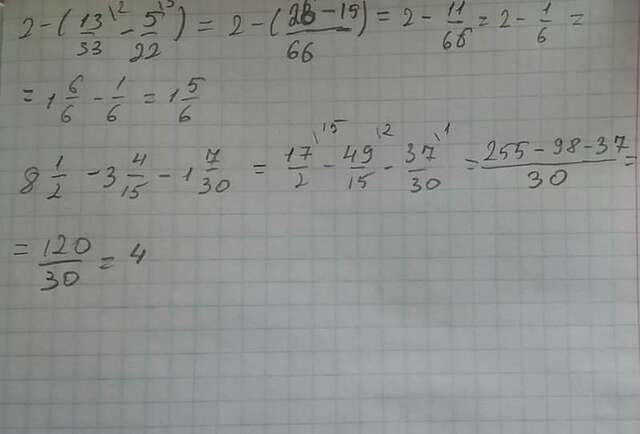 2 - (13/33 \2 - 5/22 \3) = 2 - (26 - 15 / 66) = 2 - 11/66 = 2 - 1/6 =
= 1 6/6 - 1/6 = 1 5/6
8 1/2 - 3 4/15 - 1 7/30 = 17/2 \15 - 49/15 \2 - 37/30 \1 = 255 - 98 - 37 / 30 =
= 120/30 = 4